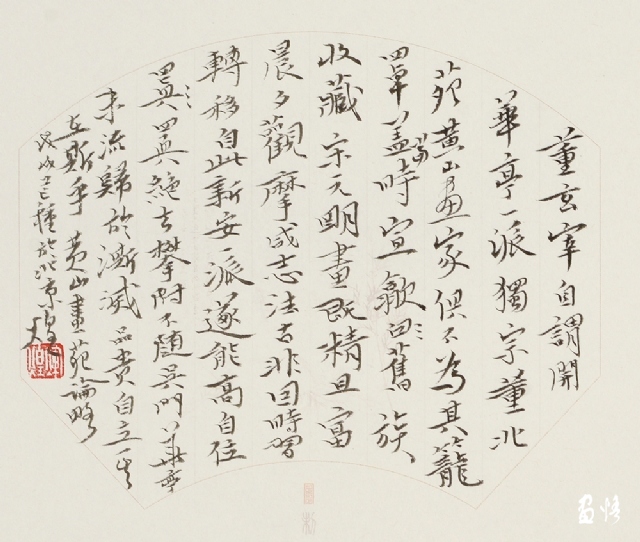 董玄宰自謂開
華亭一派獨宗董北
苑黄山畫家俱不為其籠
罩蓋當時宣歙舊族
收藏宋元明畫既精且富
晨夕觀摩咸志法古非因時習
轉移自此新安一派遂能高自位
異異絕去攀附不随吳門華亭
末流歸於澌滅品貴自立其
在斯乎 黄山畫苑論略
戊戌 於北京